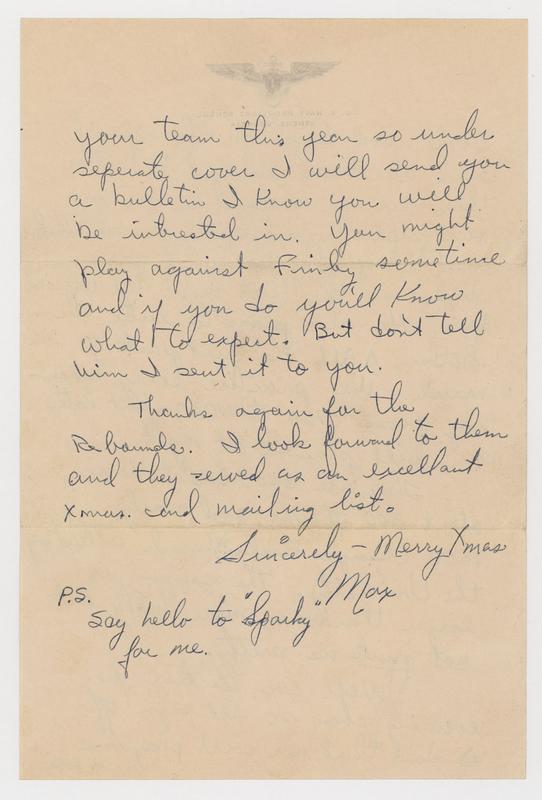 your team this year so under
seperate cover I will send you
a bulletin I know you will
be intrested in. You might
play against Finby sometime
and if you do you'll know
what to expect. But don't tell
him I sent it to you.
Thanks again for the
Rebounds. I look forward to them
and they served as an excellant
Xmas. card mailing list.
Sincerely - Merry Xmas
Max
P.S.
Say hello to "Sparky"
for me.